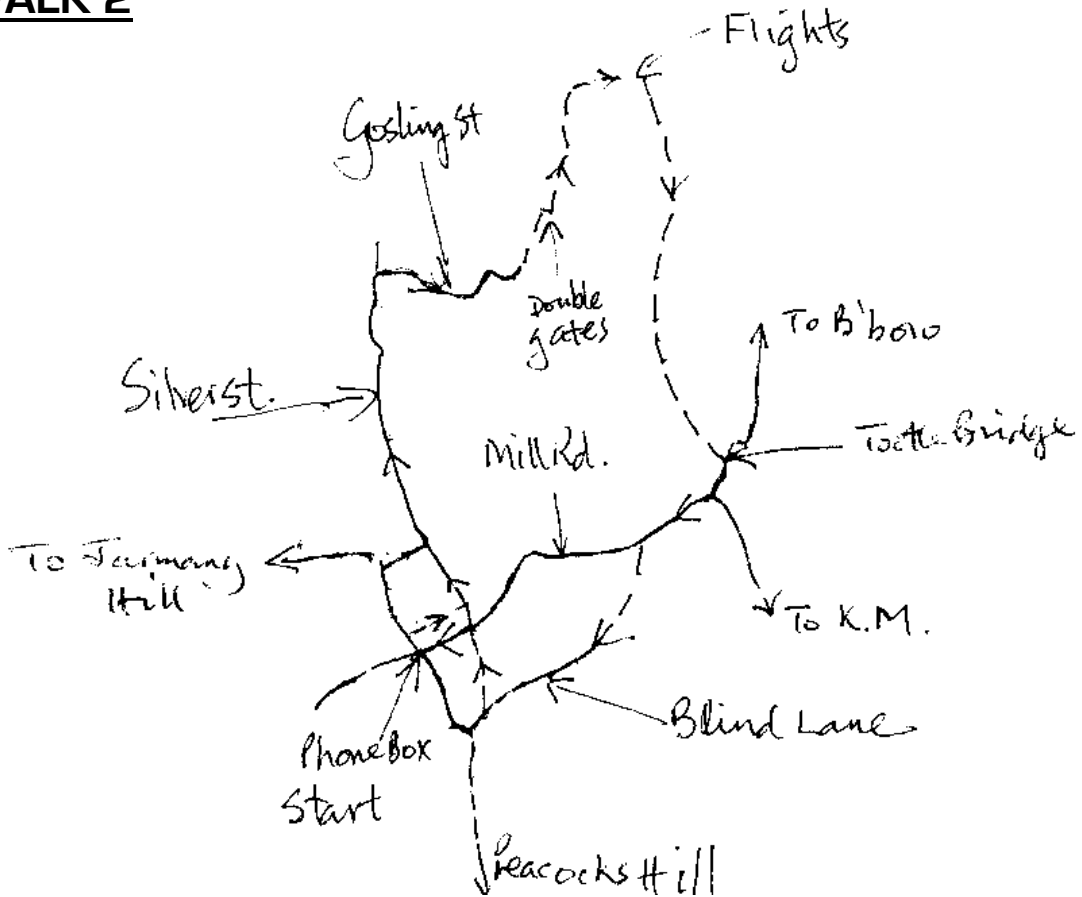 ALK 2
Flights
Gosling St
Double
gates
To B'boro
Silver st.
Tootle Bridge
Mill Rd.
To Jarmany
Hill
To K.M.
Blind Lane
Phone Box
Start
Peacocks Hill